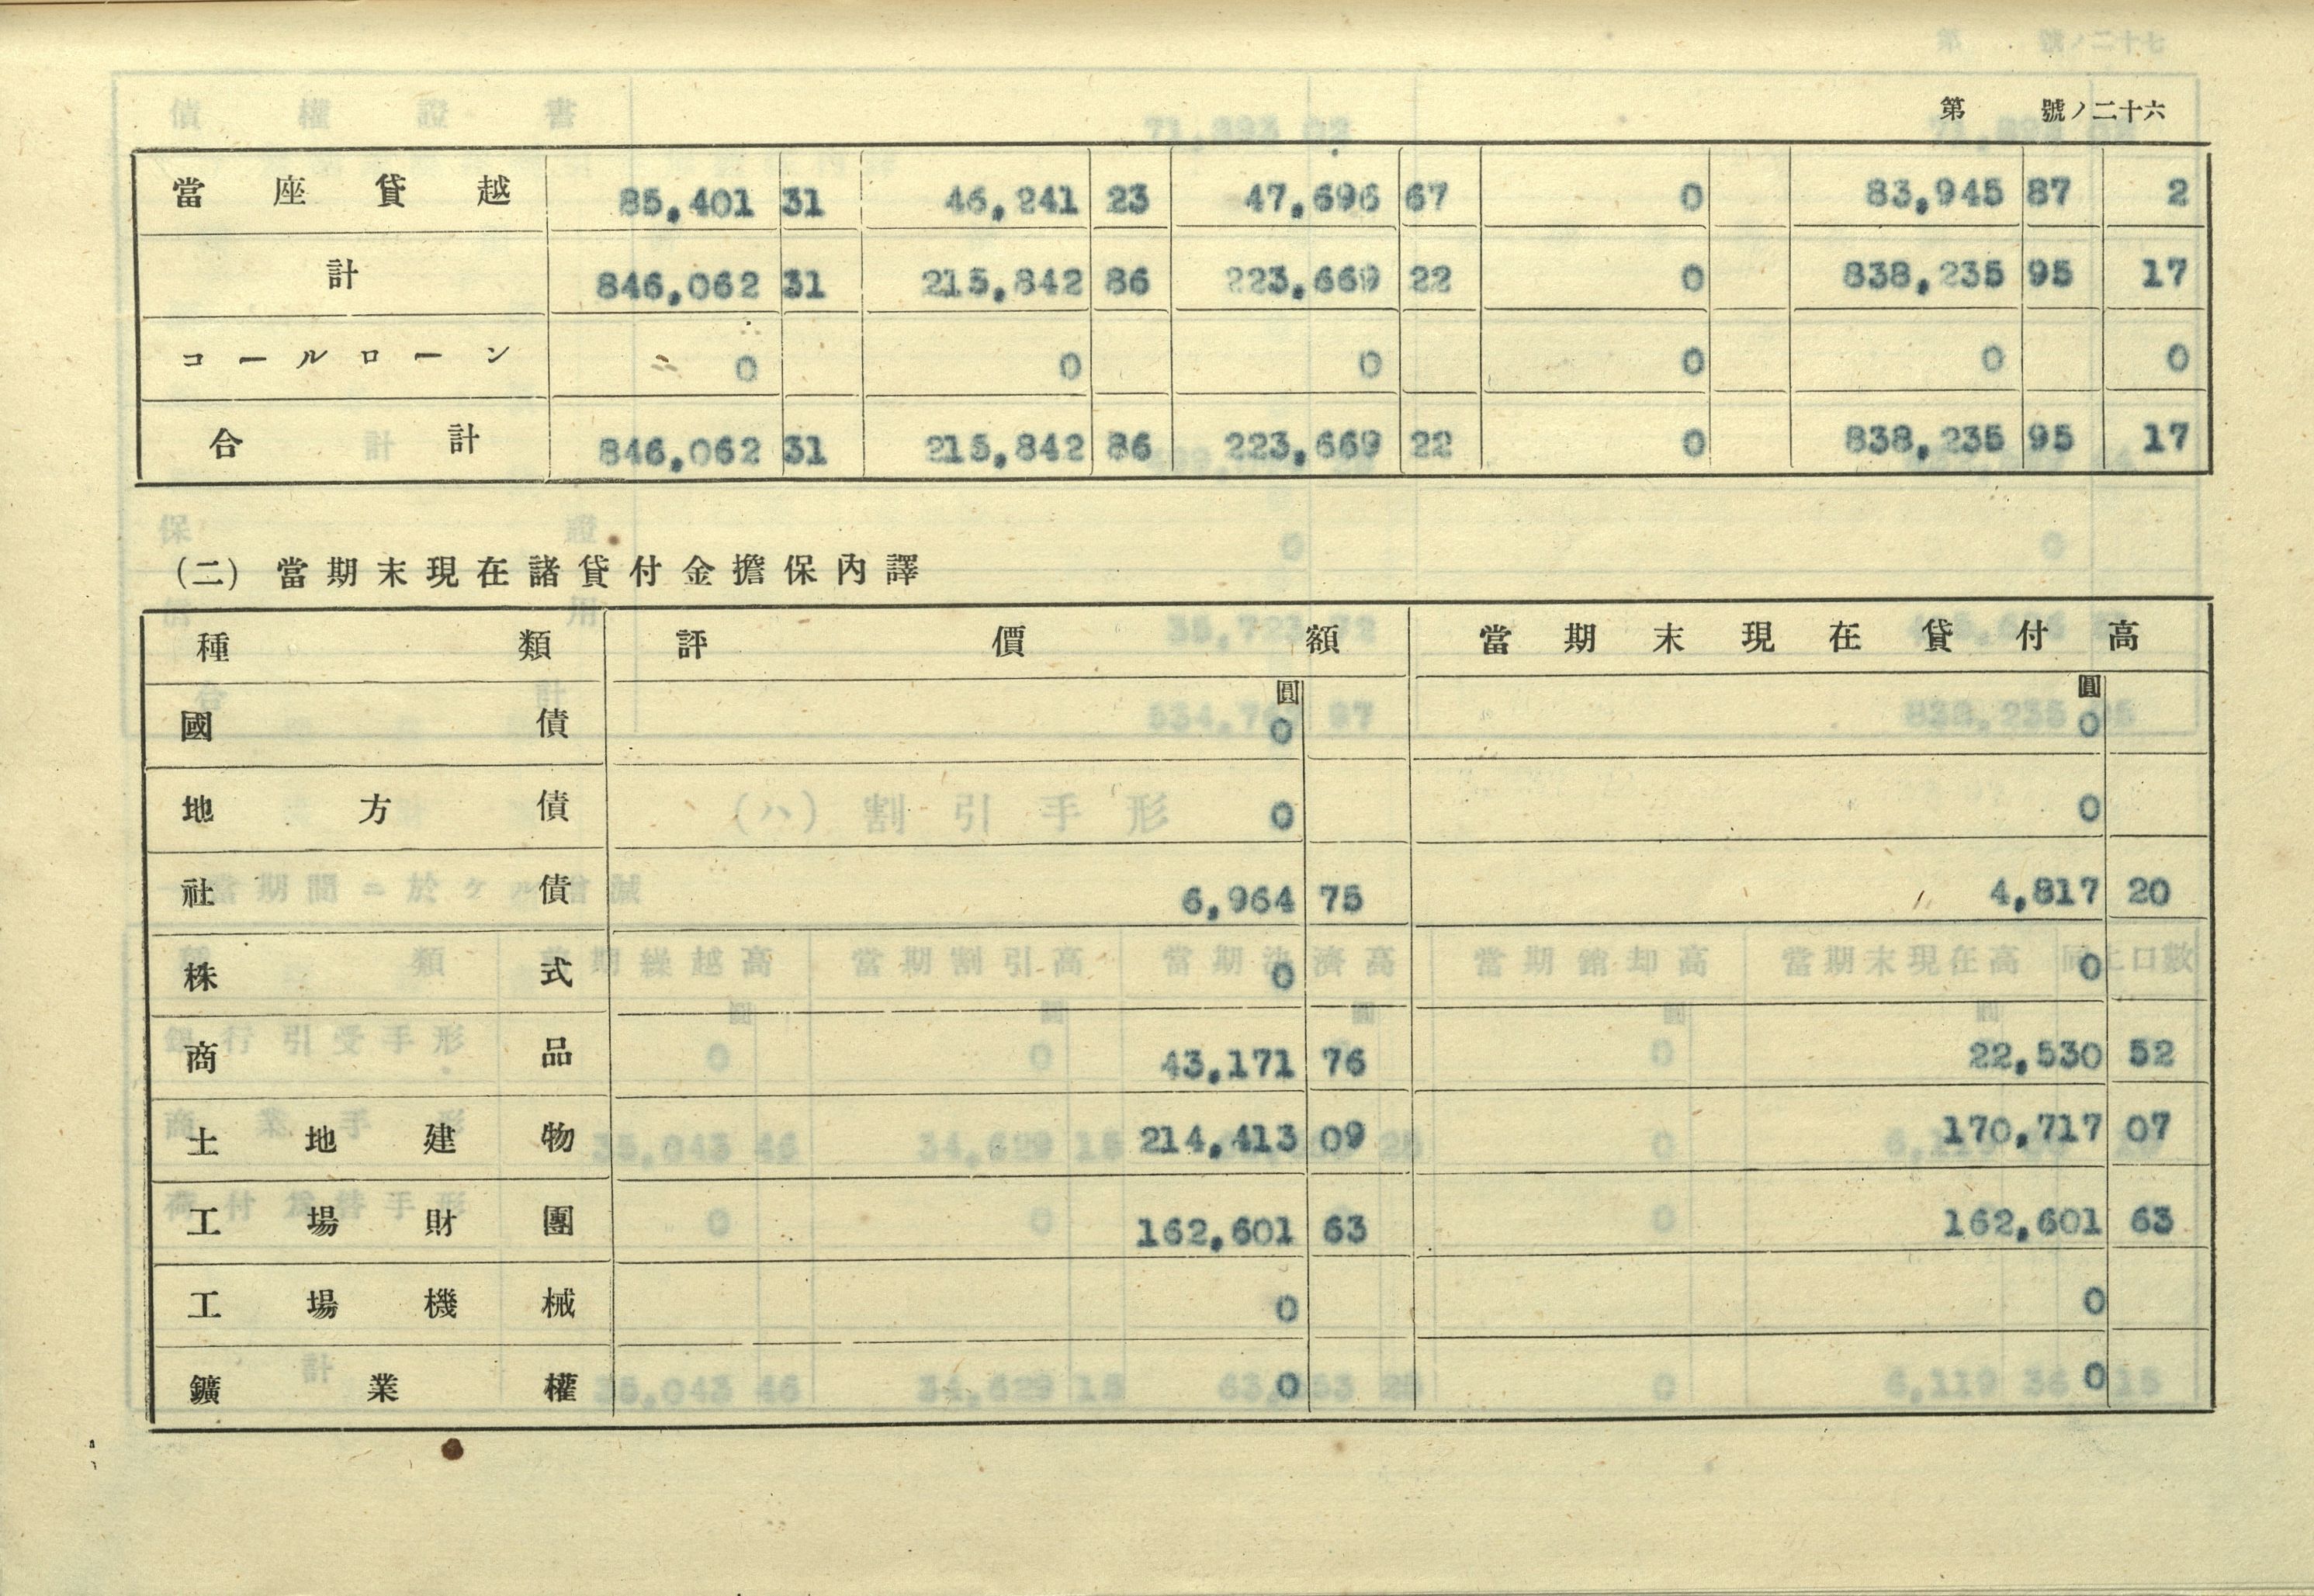 第　號ノ二十六
當座貸越 85,401 31 46,241 23 47,696 67 0 83,945 87 2
計 846,062 31 215,842 86 223,669 22 0 838,235 95 17
コールローン 0 0 0 0 0 0
合計 846,062 31 215,842 86 223,669 22 0 838,235 95 17
(二) 當期末現在諸貸付金擔保內譯
種類 評價額 當期末現在貸付高
圓 圓
國債 0 0
地方債 0 0
社債 6,964 75 4,817 20
株式 0 0
商品 43,171 76 22,530 52
土地建物 214,413 09 170,717 07
工場財團 162,601 63 162,601 63
工場機械 0 0
鑛業權 0 0